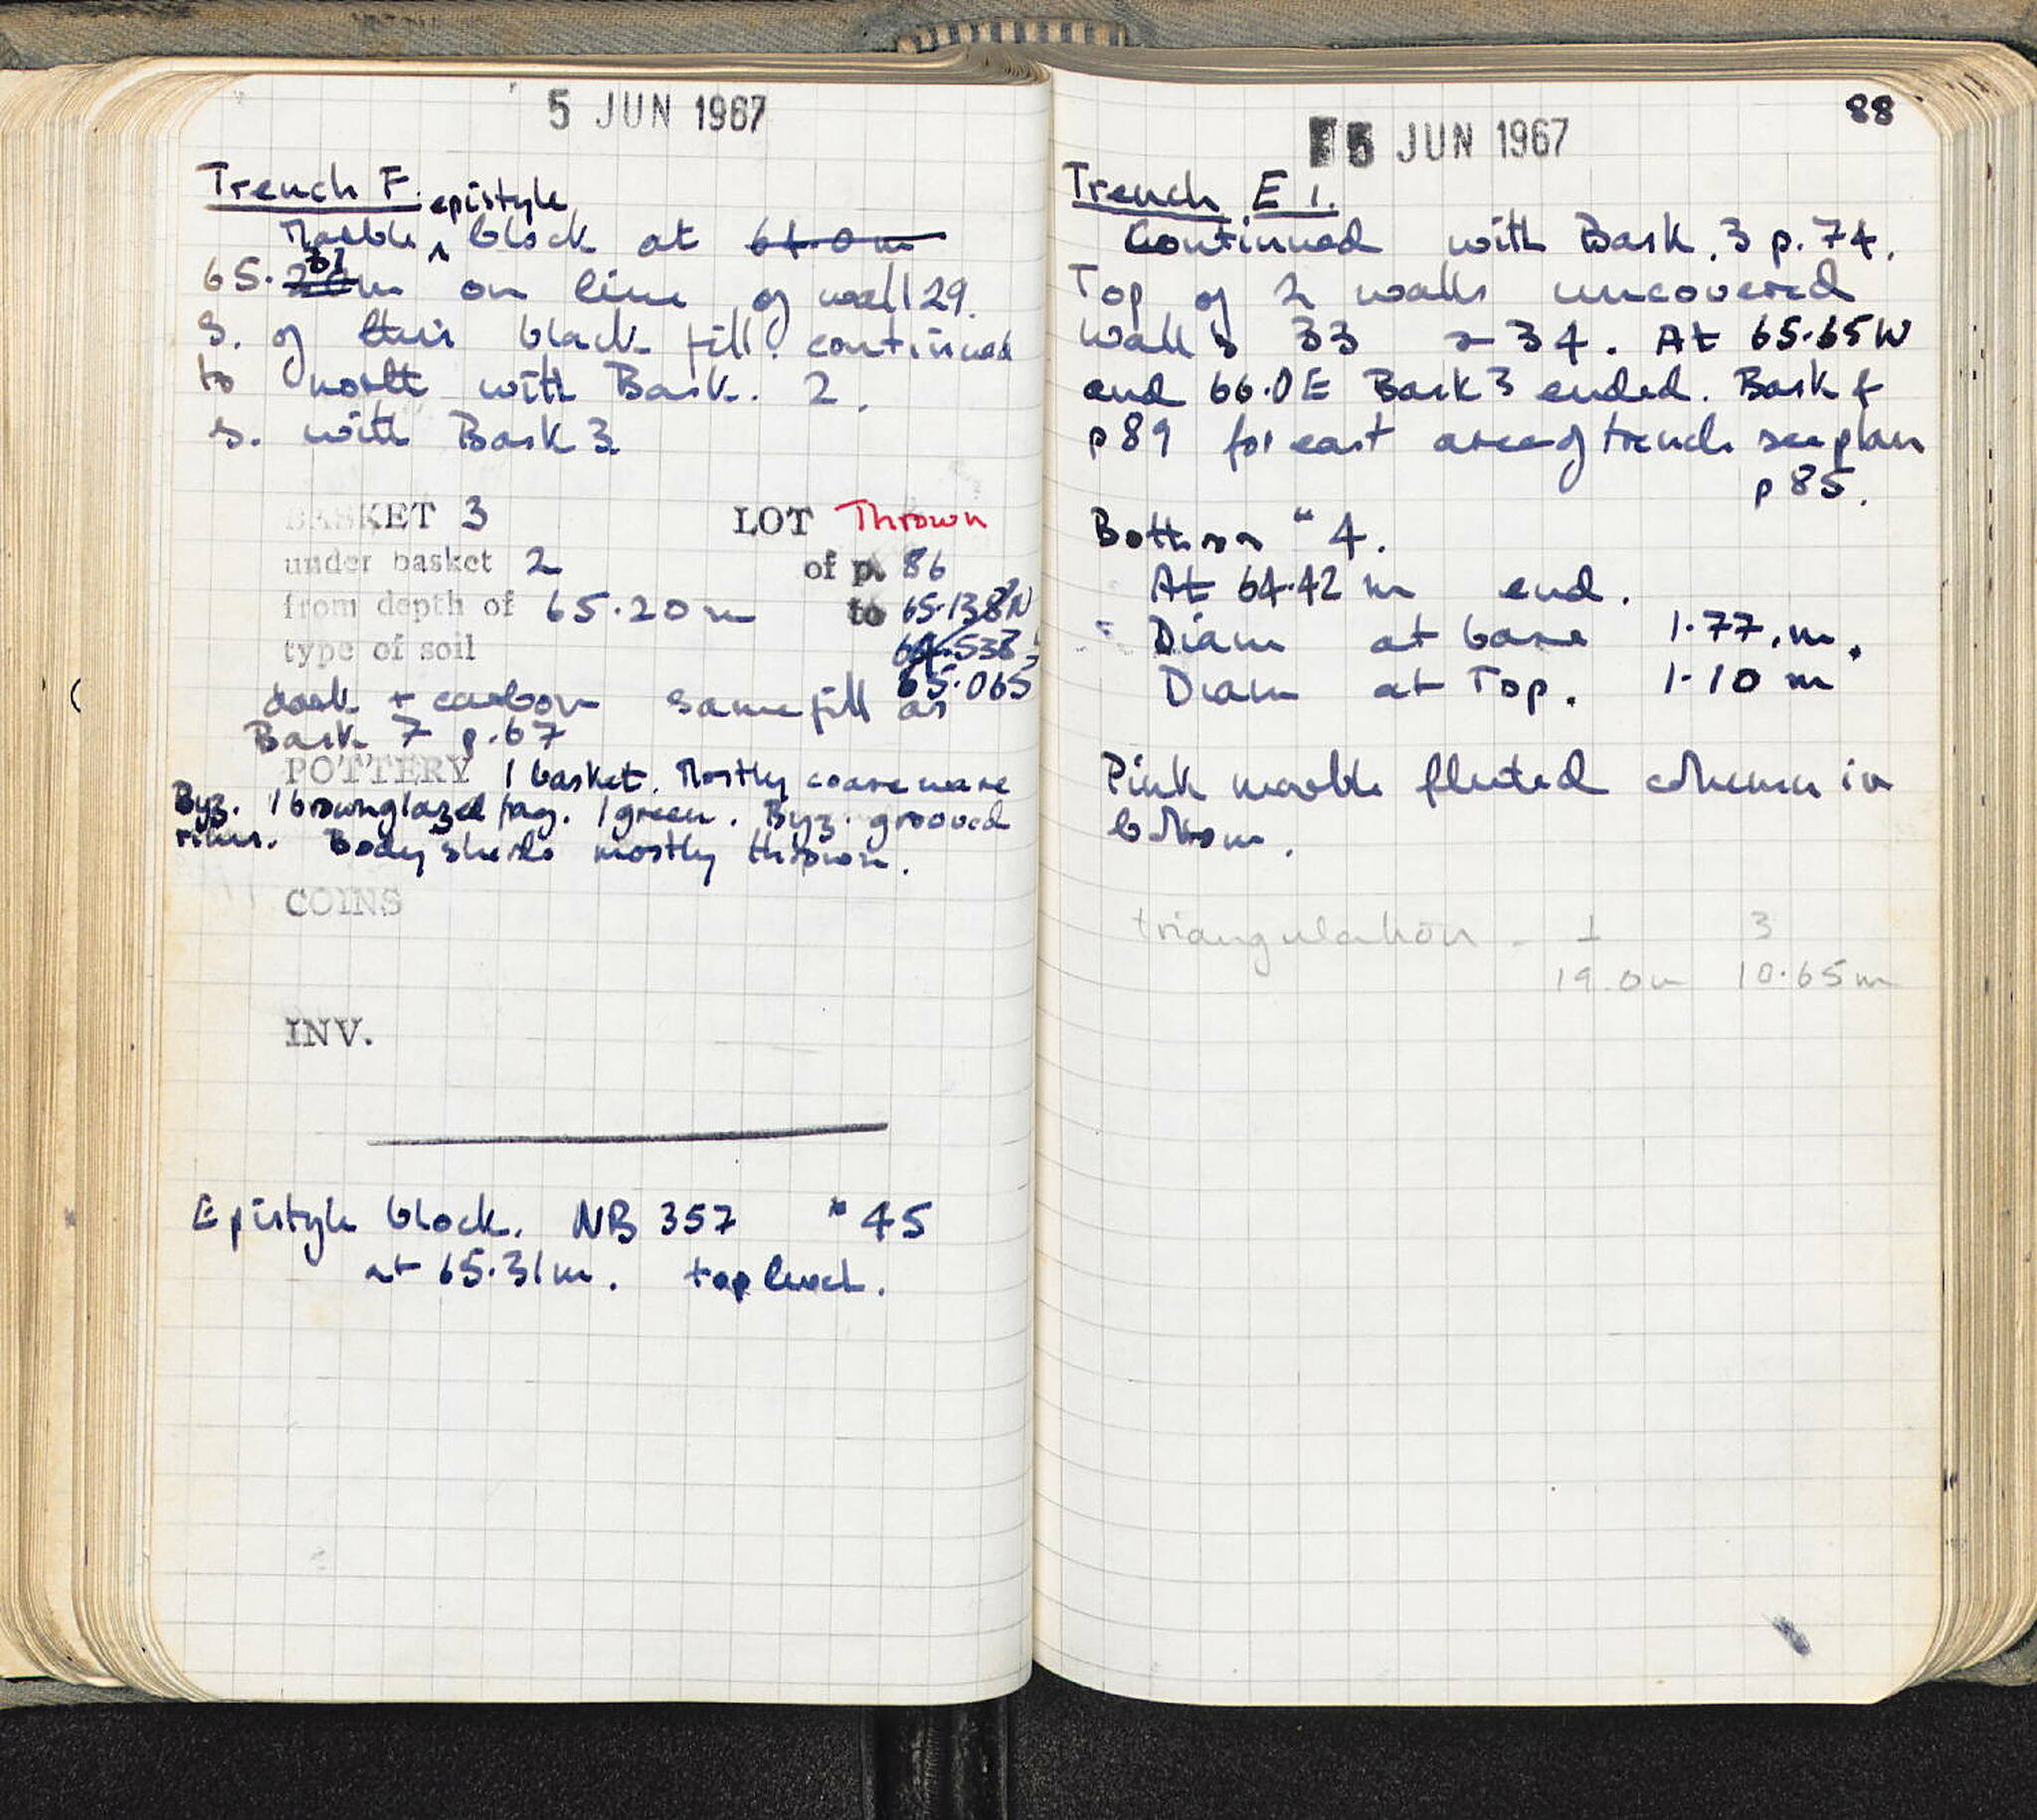 5 JUN 1967
Trench F.
epistyle
Marble ^ block at 64.0 m
65.31m on line of wall 29.
S. of this black fill. continued
to north with Bask. 2.
S. with Bask 3.
BASKET 3 LOT Thrown
under basket 2 of p. 86
from depth of 65.20m to 65.138N
type of soil
65.065
dark + carbon same fill as
Bask 7 p.67
POTTERY 1 basket. Mostly coarse ware
Byz. 1 brownglazed frag. 1 green. Byz. grooved
rims. Body sherds mostly thrown.
COINS
INV.
Epistyle block. NB 357 * 45
at 65.31m. top level.
88
5 JUN 1967
Trench E 1.
Continued with Bask. 3 p. 74.
Top of 2 walls uncovered
walls 33 & 34. At 65.65W
and 66.0E Bask 3 ended. Bask 4
p 89 for east area of trench see plan
p 85.
Bothros " 4.
At 64.42 m end.
Diam at base 1.77.m.
Diam at Top. 1.10 m
Pink marble fluted column in
bottom.
triangulation - 1 3
19.0m 10.65m